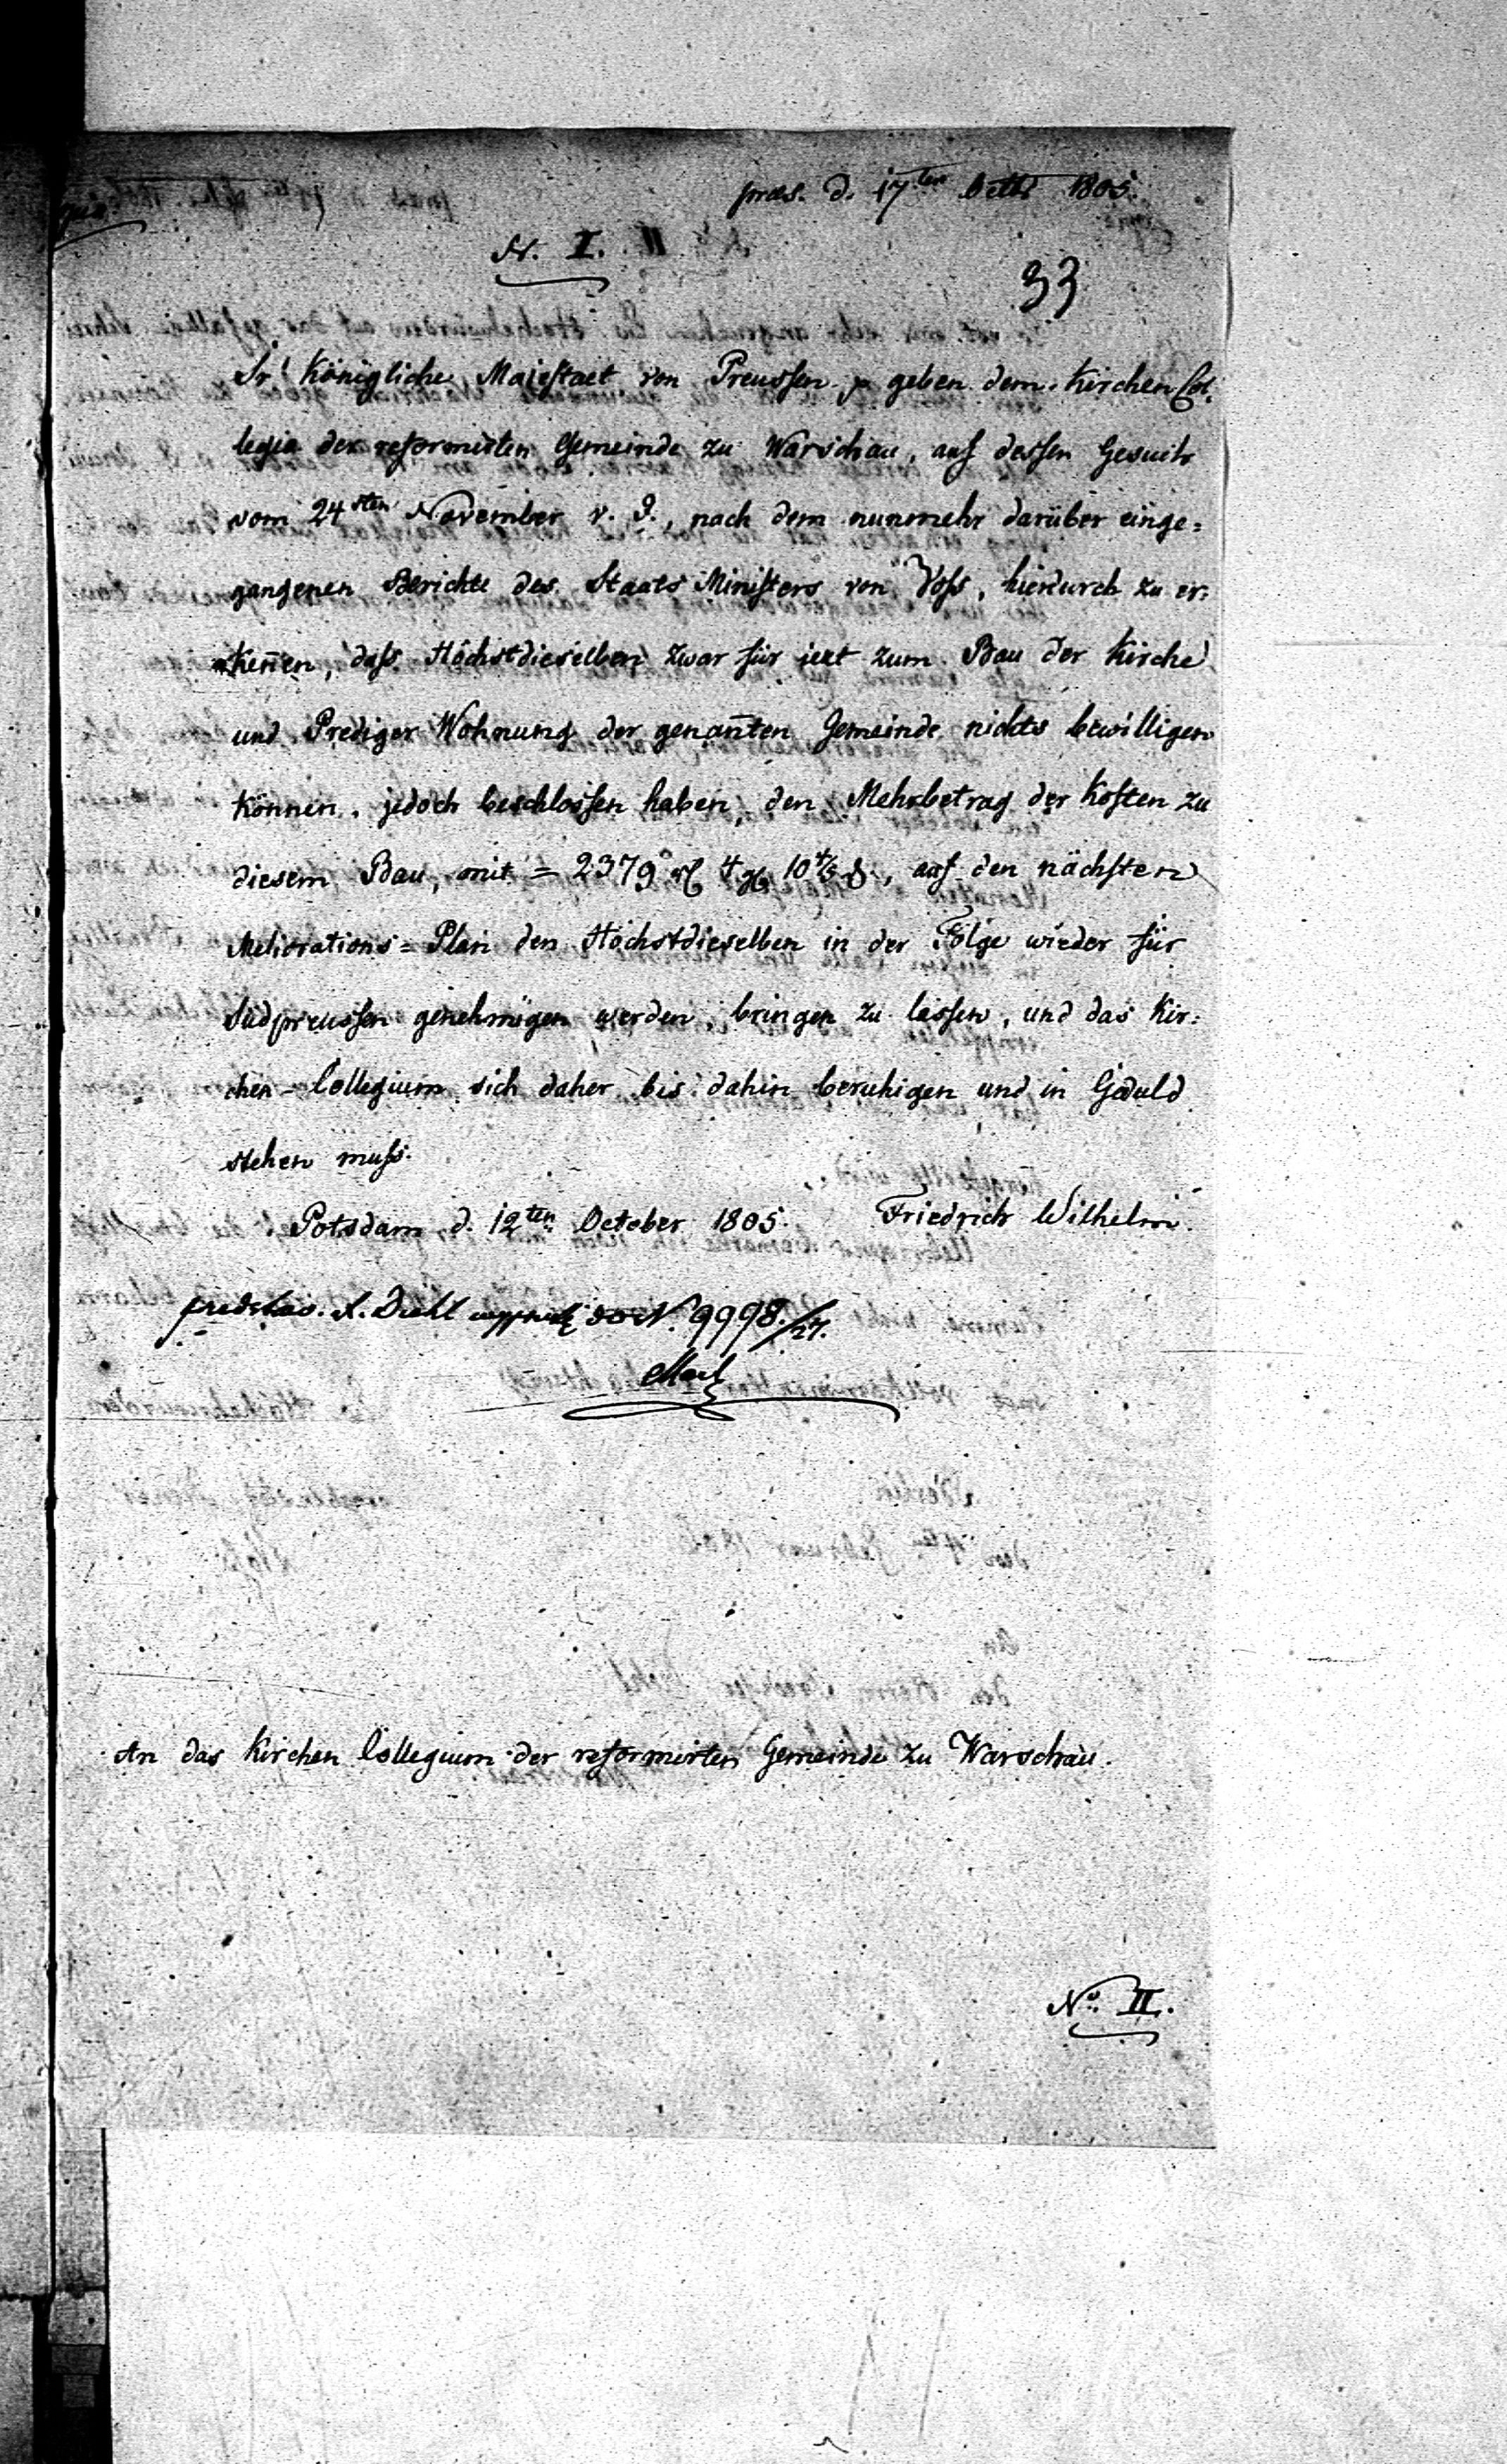 præs. d. 17ten Octbr 1805.
N. I. II
33
Sr Königliche Majestaet von Preussen p geben dem Kirchen Col-
legio der reformirten Gemeinde zu Warschau, auf dessen Gesuch
vom 24sten November v. J., nach dem nunmehr darüber einge=
gangenen Berichte des Staats Ministers von Voss, hierdurch zu er=
kennen, dass Höchstdieselben zwar für jezt zum Bau der Kirche
und Prediger Wohnung der genañten Gemeinde nichts bewilligen
können, jedoch beschlossen haben, den Mehrbetrag der Kosten zu
diesem Bau, mit = 2379 rl 4 gl 10 4/5 d., auf den nächsten
Meliorations = Plan den Höchstdieselben in der Folge wieder für
Südpreussen genehmigen werden, bringen zu lassen, und das Kir=
chen-Collegium sich daher bis dahin beruhigen und in Geduld
stehen muss.
Potsdam d. 12ten October 1805. Friedrich Wilhelm.
X. Diehl do N. 9998./27.
An das Kirchen Collegium der reformirten Gemeinde zu Warschau.
No. II.